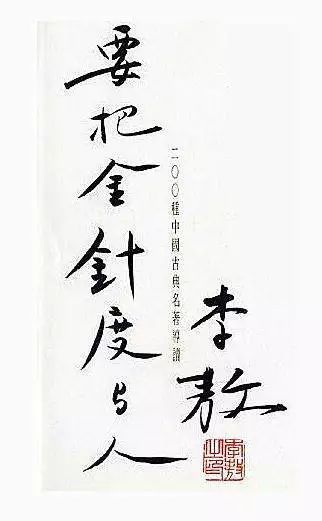 要把金針度与人
二〇〇種中國古典名著導讀
李敖
李敖之印